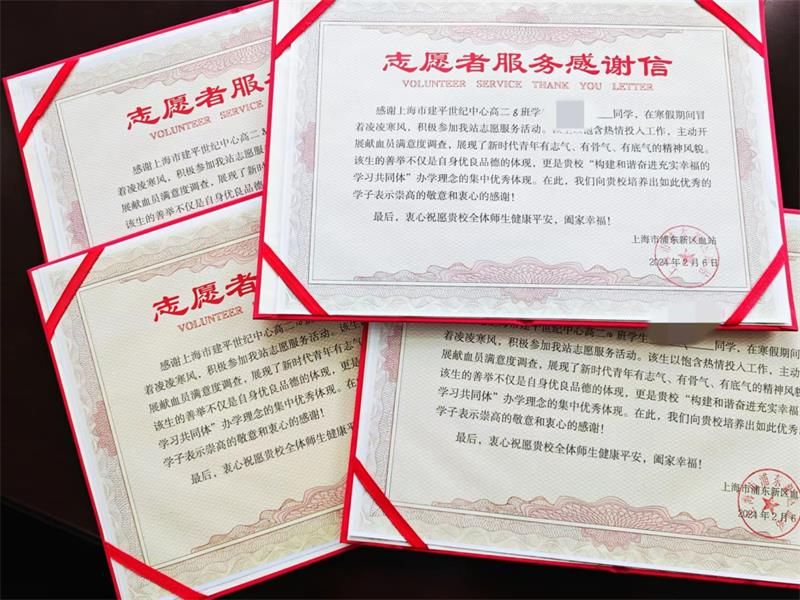 志愿者服
VOLUNTEER SERVICE
感谢上海市建平世纪中心高二8
着凌凌寒风，积极参加我站志愿服
展献血员满意度调查，展现了新时代
该生的善举不仅是自身优良品德的
志愿者服务感谢信
VOLUNTEER SERVICE THANK YOU LETTER
感谢上海市建平世纪中心高二8班学 同学，在寒假期间冒
着凌凌寒风，积极参加我站志愿服务活动。该生以饱含热情投入工作，主动开
展献血员满意度调查，展现了新时代青年有志气、有骨气、有底气的精神风貌。
该生的善举不仅是自身优良品德的体现，更是贵校“构建和谐奋进充实幸福的
学习共同体”办学理念的集中优秀体现。在此，我们向贵校培养出如此优秀的
学子表示崇高的敬意和衷心的感谢！
最后，衷心祝愿贵校全体师生健康平安，阖家幸福！
上海市浦东新区血站
2024年2月6日
志愿者
VOLUNTEER
感谢上海市建平世纪中心高二
着凌凌寒风，积极参加我站志愿服务活动。该生
展献血员满意度调查，展现了新时代青年有志气
该生的善举不仅是自身优良品德的体现，更
学习共同体”办学理念的集中优秀体现。在
学子表示崇高的敬意和衷心的感谢！
最后，衷心祝愿贵校全体师生健康平
感谢上海市建平世纪中心高二 班学生 同学，在寒假期间
着凌凌寒风，积极参加我站志愿服务活动。该生以饱含热情投入工作，主动
展献血员满意度调查，展现了新时代青年有志气、有骨气、有底气的精神风貌
该生的善举不仅是自身优良品德的体现，更是贵校“构建和谐奋进充实幸
学习共同体”办学理念的集中优秀体现。在此，我们向贵校培养出如此优秀
学子表示崇高的敬意和衷心的感谢！
最后，衷心祝愿贵校全体师生健康平安，阖家幸福！
上海市浦东新区血
2024年2月6